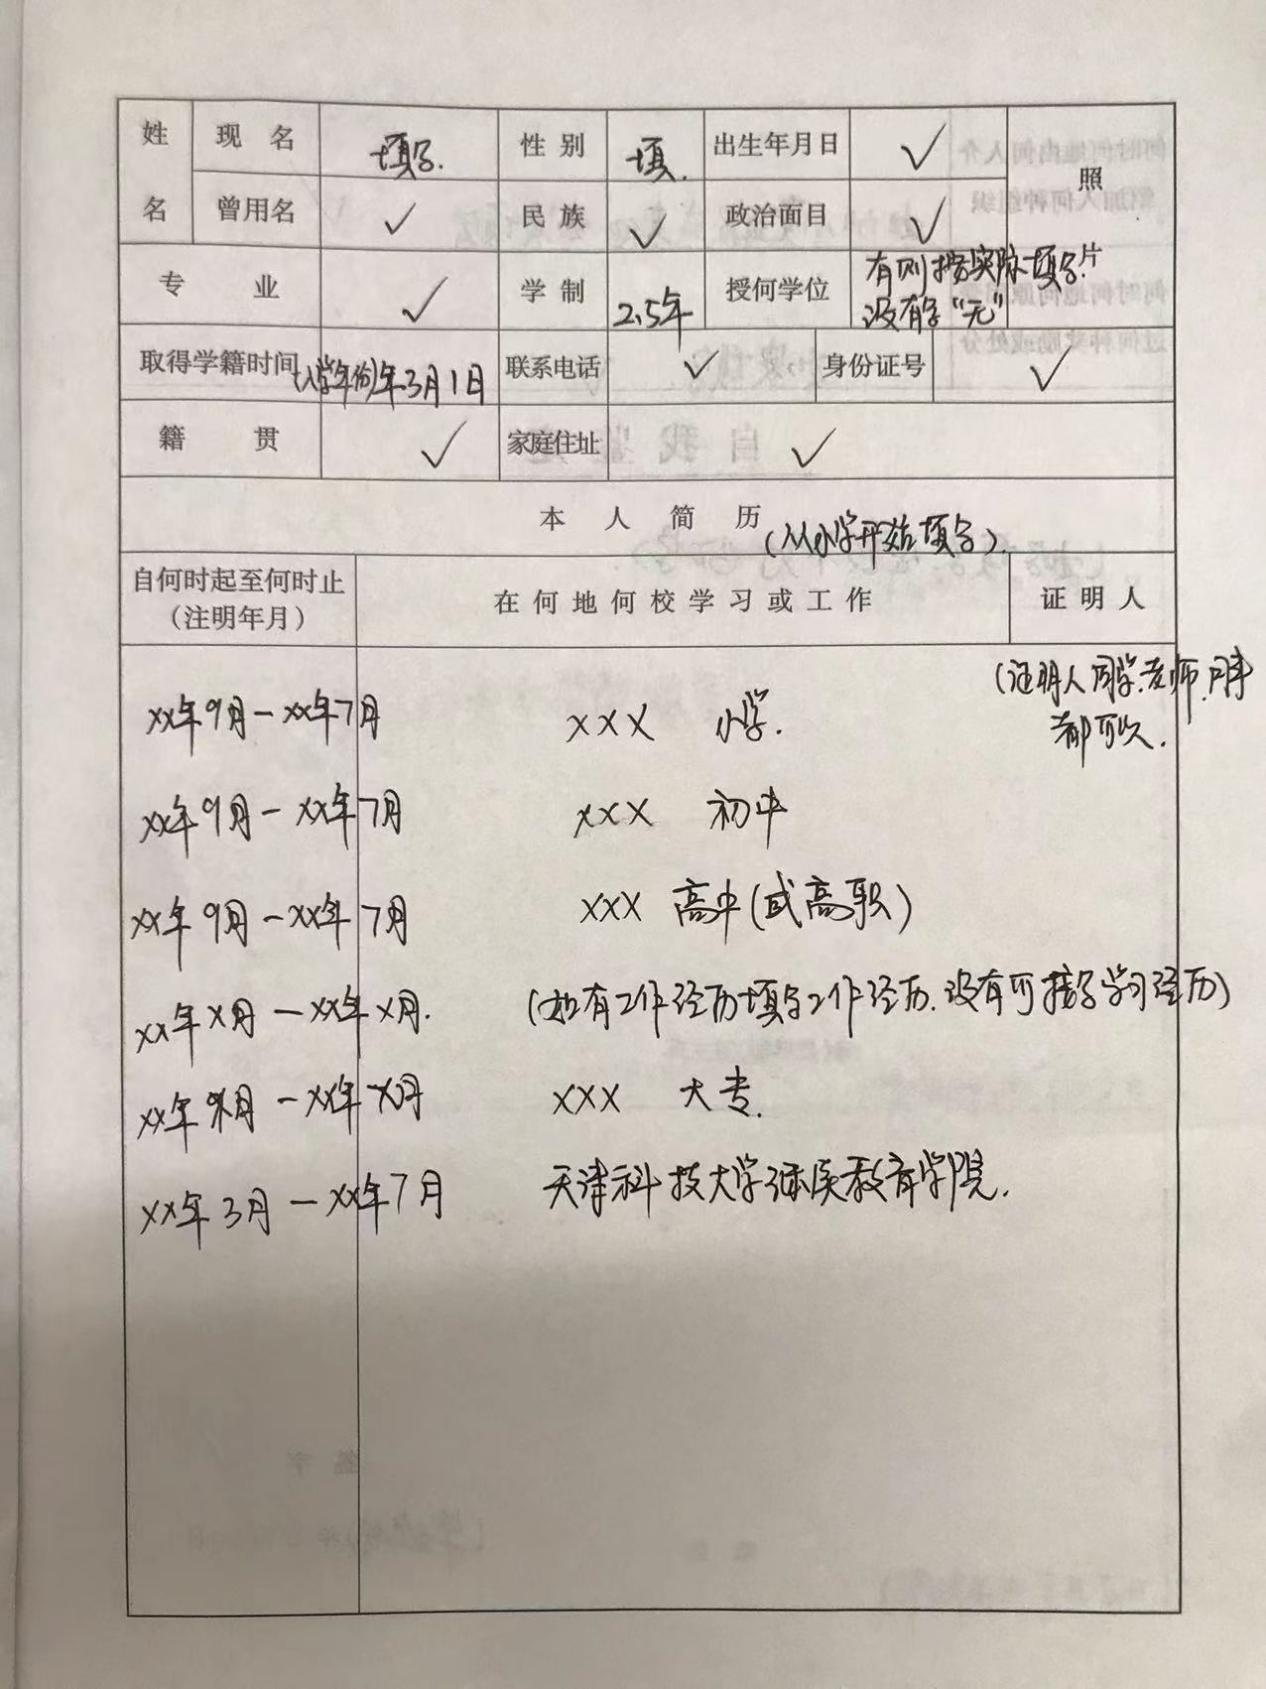 姓名 现名 填写. 性别 填. 出生年月日 ✓ 照片
曾用名 ✓ 民族 ✓ 政治面目 ✓
专业 ✓ 学制 2.5年 授何学位 有则按实际填写.
没有写“无”
取得学籍时间 (入学年份)年3月1日 联系电话 ✓ 身份证号 ✓
籍贯 ✓ 家庭住址 ✓
本人简历 (从小学开始填写).
自何时起至何时止
(注明年月)
在何地何校学习或工作
证明人
(证明人同学.老师.同事
都可以.
xx年9月-xx年7月 xxx 小学.
xx年9月-xx年7月 xxx 初中
xx年9月-xx年7月 xxx 高中(或高职)
xx年x月-xx年x月. (如有工作经历填写工作经历.没有可接写学习经历)
xx年 月-xx年x月 xxx 大专.
xx年3月-xx年7月 天津科技大学继续教育学院.